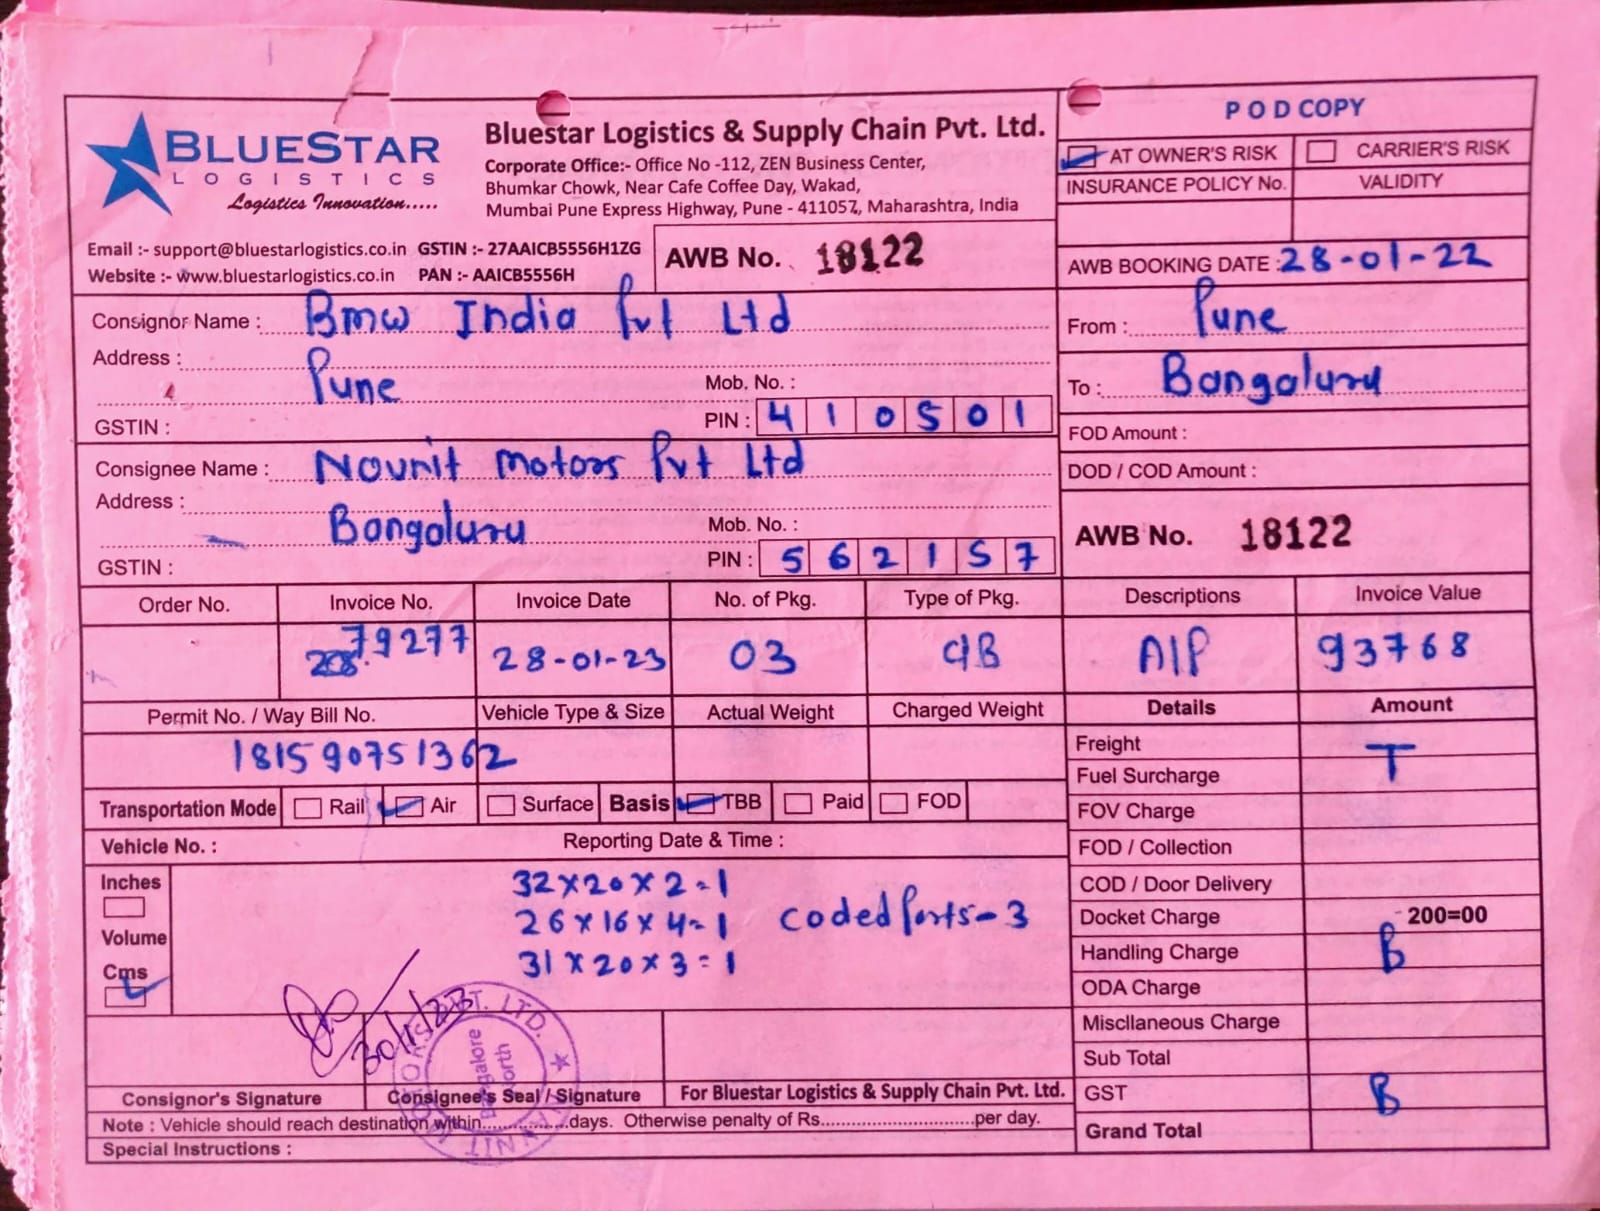 BLUESTAR
LOGISTICS
Logistics Innovation.....
Bluestar Logistics & Supply Chain Pvt. Ltd.
Corporate Office:- Office No -112, ZEN Business Center,
Bhumkar Chowk, Near Cafe Coffee Day, Wakad,
Mumbai Pune Express Highway, Pune - 411057, Maharashtra, India
Email :- support@bluestarlogistics.co.in GSTIN :- 27AAICB5556H1ZG
Website :- www.bluestarlogistics.co.in PAN :- AAICB5556H
AWB No. 18122
POD COPY
AT OWNER'S RISK CARRIER'S RISK
INSURANCE POLICY No. VALIDITY
AWB BOOKING DATE : 28-01-22
Consignor Name : Bmw India Pvt Ltd
Address :
Pune
Mob. No. :
GSTIN : PIN : 410501
From : Pune
To : Bangaluru
FOD Amount :
DOD / COD Amount :
Consignee Name : Novnit Motors Pvt Ltd
Address :
Bangaluru
Mob. No. :
GSTIN : PIN : 562157
AWB No. 18122
Order No. Invoice No. Invoice Date No. of Pkg. Type of Pkg. Descriptions Invoice Value
79277 28-01-23 03 C/B A/P 93768
Permit No. / Way Bill No. Vehicle Type & Size Actual Weight Charged Weight Details Amount
181590751362
Transportation Mode Rail Air Surface Basis TBB Paid FOD
Vehicle No. : Reporting Date & Time :
Inches
Volume
Cms
32x20x2=1
26x16x4=1 Coded Parts-3
31x20x3=1
Freight T
Fuel Surcharge
FOV Charge
FOD / Collection
COD / Door Delivery
Docket Charge 200=00
Handling Charge B
ODA Charge
Miscllaneous Charge
Sub Total
GST B
Grand Total
30/1/23
Bangalore
North
Consignor's Signature Consignee's Seal / Signature For Bluestar Logistics & Supply Chain Pvt. Ltd.
Note : Vehicle should reach destination within................days. Otherwise penalty of Rs............................per day.
Special Instructions :